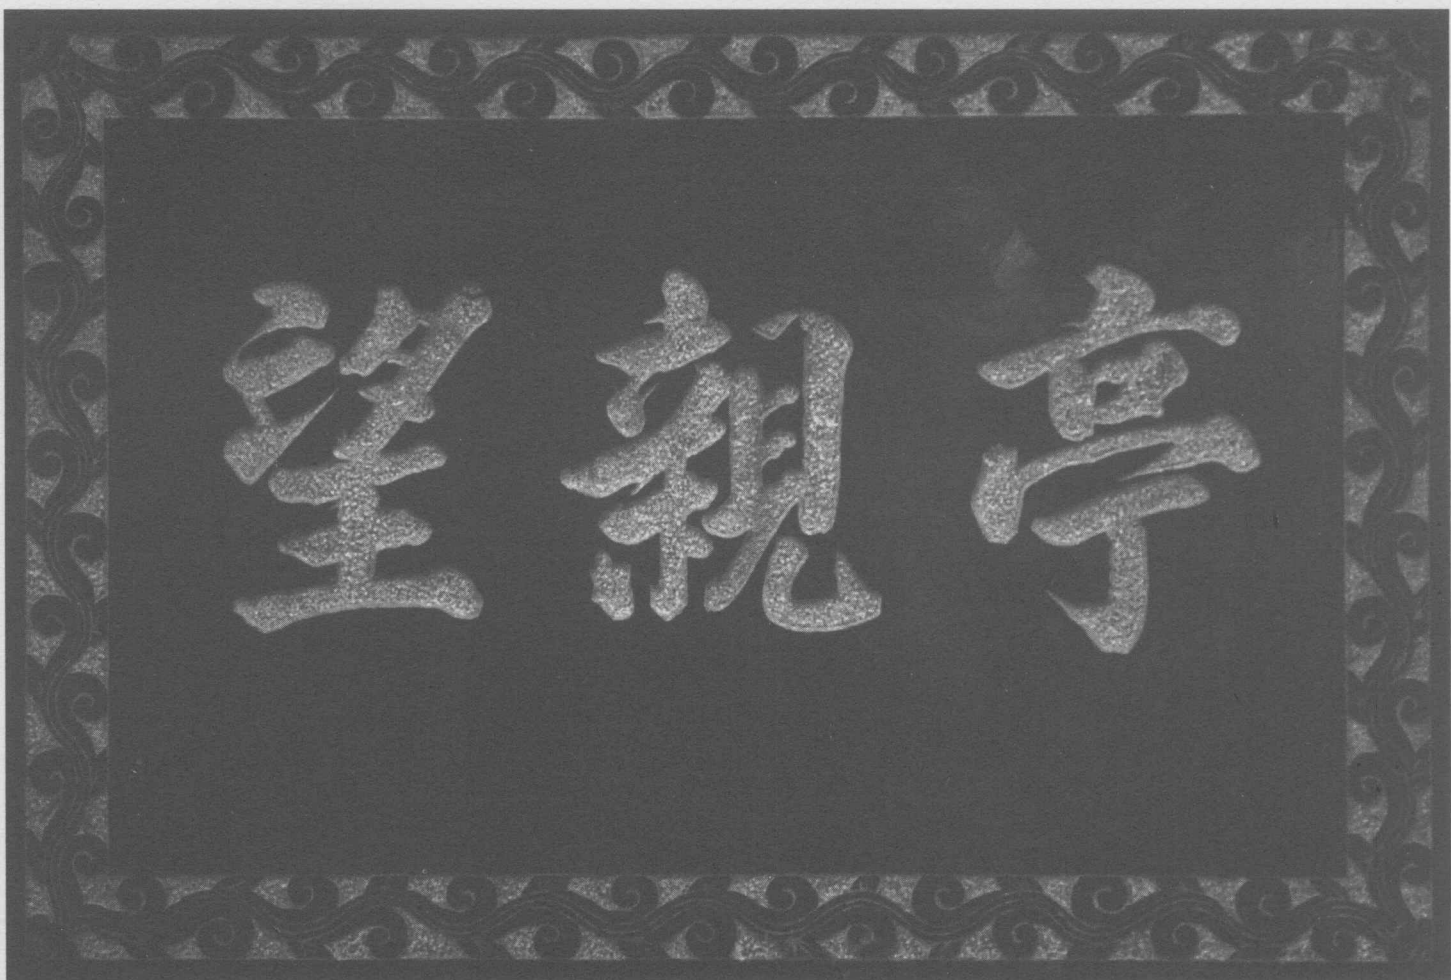 望親亭